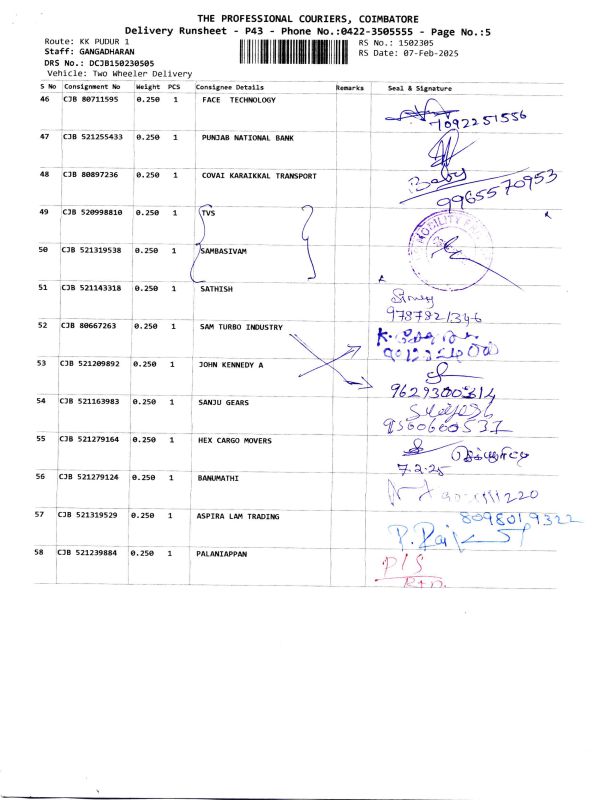 THE PROFESSIONAL COURIERS, COIMBATORE
Delivery Runsheet - P43 - Phone No.:0422-3505555 - Page No.:5
Route: KK PUDUR 1 RS No.: 1502305
Staff: GANGADHARAN RS Date: 07-Feb-2025
DRS No.: DCJB150230505
Vehicle: Two Wheeler Delivery
S No Consignment No Weight PCS Consignee Details Remarks Seal & Signature
46 CJB 80711595 0.250 1 FACE TECHNOLOGY
7092251556
47 CJB 521255433 0.250 1 PUNJAB NATIONAL BANK
48 CJB 80897236 0.250 1 COVAI KARAIKKAL TRANSPORT
Baby
9965570953
49 CJB 520998810 0.250 1 TVS
MOBILITY
50 CJB 521319538 0.250 1 SAMBASIVAM
51 CJB 521143318 0.250 1 SATHISH
9787821346
52 CJB 80667263 0.250 1 SAM TURBO INDUSTRY
53 CJB 521209892 0.250 1 JOHN KENNEDY A
9629300314
54 CJB 521163983 0.250 1 SANJU GEARS
55 CJB 521279164 0.250 1 HEX CARGO MOVERS
7.2.25
56 CJB 521279124 0.250 1 BANUMATHI
57 CJB 521319529 0.250 1 ASPIRA LAM TRADING
8098019322
58 CJB 521239884 0.250 1 PALANIAPPAN
P/S